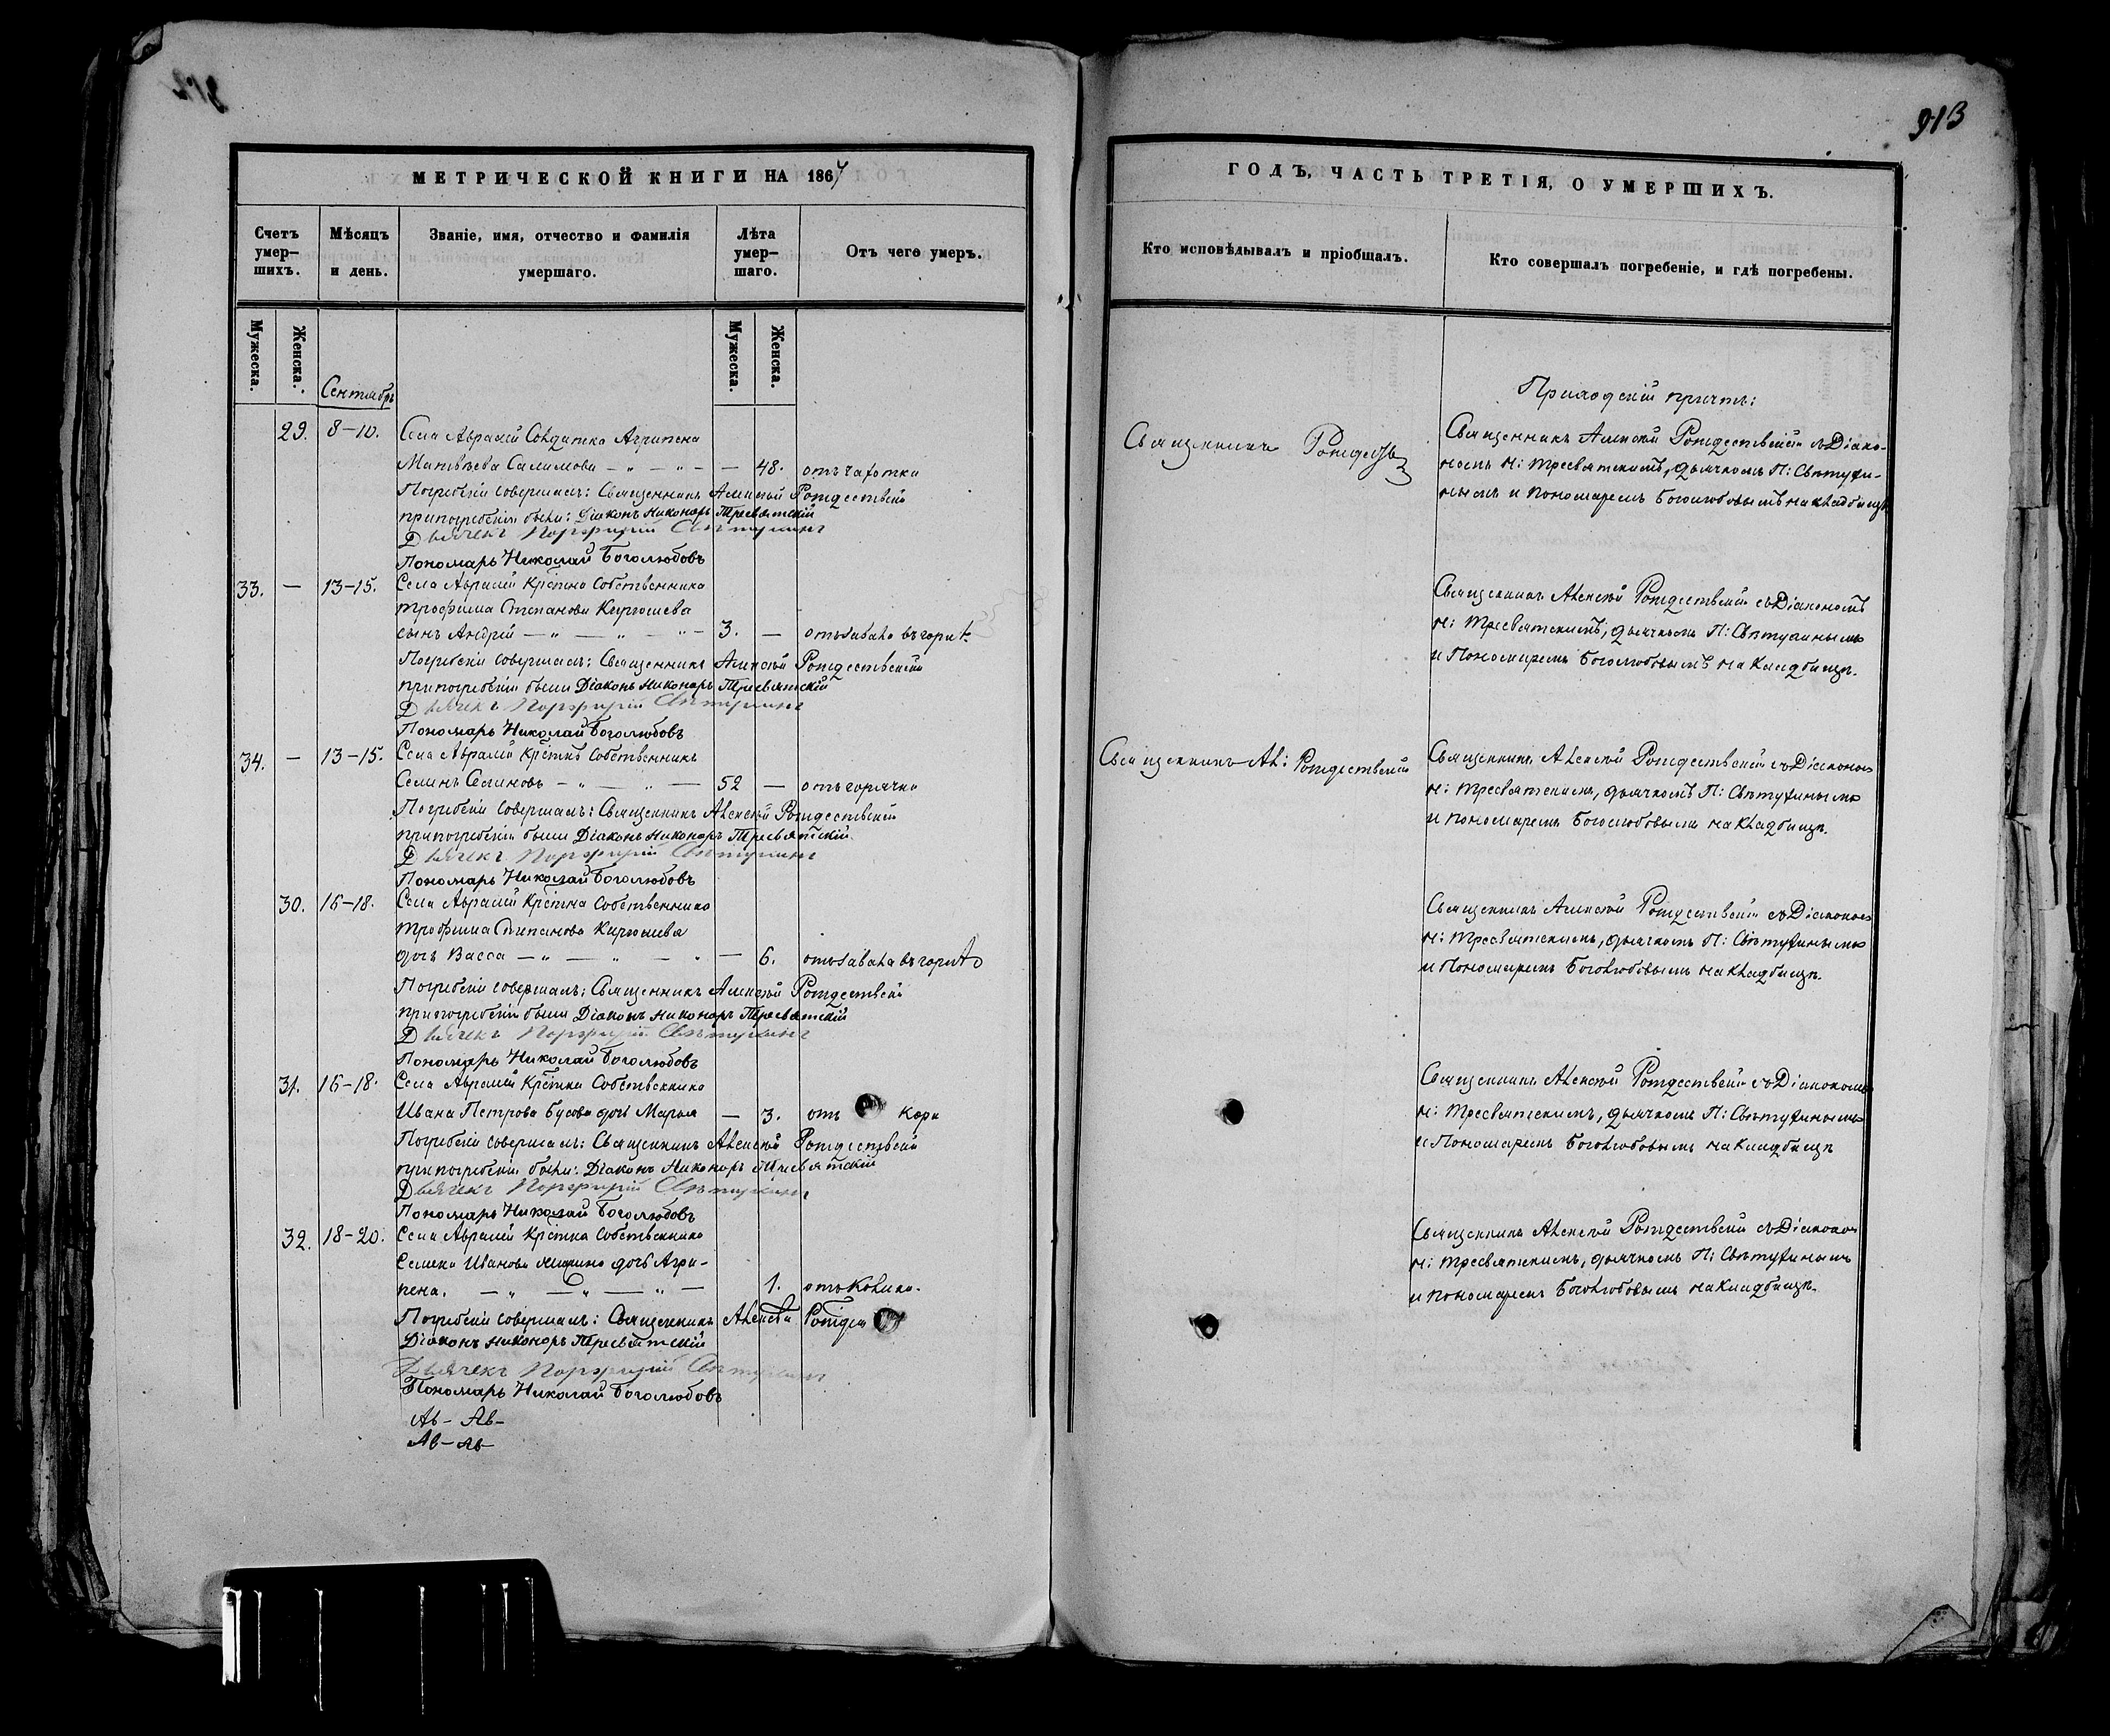 913
МЕТРИЧЕСКОЙ КНИГИ НА 1867
Счетъ умер-шихъ.
Мѣсяцъ и день.
Званіе, имя, отчество и фамилія умершаго.
Лѣта умер-шаго.
Отъ чего умеръ.
Мужеска.
Женска.
Мужеска.
Женска.
Сентябрь
29. 8–10. Села Авралей Солдатка Агрипена
Матвѣева Салимова — „ — „ — — 48. отъ чахотки
Погребеніе совершалъ: Священникъ Алексѣй Рождественскій
при погребеніи были: Діаконъ Никоноръ Тресвятскій
Дьячекъ Порфирій Свѣтухинъ
Пономарь Николай Боголюбовъ
33. — 13–15. Села Авралей Крестина Собственника
Трофима Степанова Киргишева
сынъ Андрей — „ — „ — „ — 3. —
Погребеніе совершалъ: Священникъ Алексѣй Рождественскій
при погребеніи были Діаконъ Никоноръ Тресвятскій
Дьячекъ Порфирій Свѣтухинъ
Пономарь Николай Боголюбовъ
34. — 13–15. Села Авралей Крестнъ Собственникъ
Семинъ Семиновъ — „ — „ — 52 — отъ горячки
Погребеніе совершалъ: Священникъ Алексѣй Рождественскій
при погребеніи были Діаконъ Никоноръ Тресвятскій
Дьячекъ Порфирій Свѣтухинъ
Пономарь Николай Боголюбовъ
30. 16–18. Села Авралей Крестина Собственника
Трофима Степанова Киргишева
дочь Васса — „ — „ — „ — 6.
Погребеніе совершалъ: Священникъ Алексѣй Рождественскій
при погребеніи были Діаконъ Никоноръ Тресвятскій
Дьячекъ Порфирій Свѣтухинъ
Пономарь Николай Боголюбовъ
31. 16–18. Села Авралей Крестина Собственника
Ивана Петрова Бусова дочь Марья — 3. отъ кори
Погребеніе совершалъ: Священникъ Алексѣй Рождественскій
при погребеніи были: Діаконъ Никоноръ Тресвятскій
Дьячекъ Порфирій Свѣтухинъ
Пономарь Николай Боголюбовъ
32. 18–20. Села Авралей Крестина Собственника
Семена Иванова дочь Агри-
пена. — „ — „ — „ — 1.
Погребеніе совершалъ: Священникъ Алексѣй Рождест
Діаконъ Никоноръ Тресвятскій
Дьячекъ Порфирій Свѣтухинъ
Пономарь Николай Боголюбовъ
Ав– Ав–
Ав– ав–
ГОДЪ, ЧАСТЬ ТРЕТІЯ, О УМЕРШИХЪ.
Кто исповѣдывалъ и пріобщалъ.
Кто совершалъ погребеніе, и гдѣ погребены.
Приходскій причтъ:
Священникъ Рождеств
Священникъ Алексѣй Рождественскій съ Діако-
номъ Н: Тресвятскимъ, дьячкомъ П: Свѣтухи-
нымъ и Пономаремъ Боголюбовымъ на кладбищѣ
Священникъ Алексѣй Рождественскій съ Діакономъ
Н: Тресвятскимъ, дьячкомъ П: Свѣтухинымъ
и Пономаремъ Боголюбовымъ на кладбищѣ.
Священникъ Ал: Рождественскій
Священникъ Алексѣй Рождественскій съ Діаконом
Н: Тресвятскимъ, дьячкомъ П: Свѣтухинымъ
и пономаремъ Боголюбовымъ на кладбищѣ.
Священникъ Алексѣй Рождественскій съ Діаконом
Н: Тресвятскимъ, дьячкомъ П: Свѣтухинымъ
и Пономаремъ Боголюбовымъ на кладбищѣ.
Священникъ Алексѣй Рождественскій съ Діакономъ
Н: Тресвятскимъ, дьячкомъ П: Свѣтухинымъ
и Пономаремъ Боголюбовымъ на кладбищѣ
Священникъ Алексѣй Рождественскій съ Діакон
Н: Тресвятскимъ, дьячкомъ П: Свѣтухинымъ
и пономаремъ Боголюбовымъ на кладбищѣ.